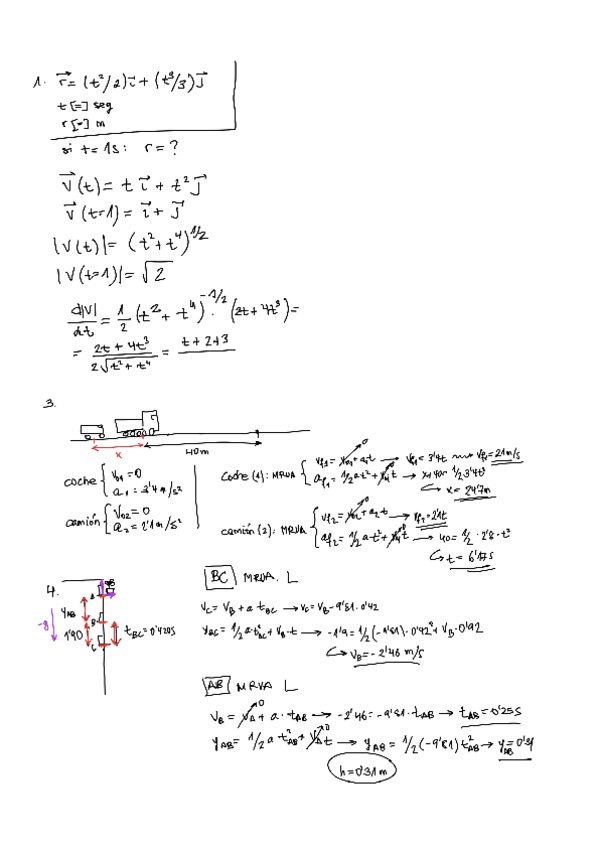 1. r⃗ = (t²/2) i⃗ + (t³/3) j⃗
t [=] seg
r [=] m
si t = 1s : r = ?
v⃗(t) = t i⃗ + t² j⃗
v⃗(t=1) = i⃗ + j⃗
|v(t)| = (t² + t⁴)^1/2
|v(t=1)| = √2
d|v|/dt = 1/2 (t² + t⁴)^-1/2 · (2t + 4t³) =
= 2t + 4t³ / 2√t² + t⁴ = t + 2t3
3.
x 40m
coche { v01 = 0
a1 = 3'4 m/s²
camión { v02 = 0
a2 = 2'1 m/s²
coche (1): MRUA { vf1 = v01 + a1t → vf1 = 3'4t → vf1 = 21 m/s
→ x+40 = 1/2 3'4t²
→ x = 24'7m
camión (2): MRUA { vf2 = v02 + a2t
→ 40 = 1/2 · 2'8 · t²
→ t = 6'17s
4. A
yAB
B
-g 1'90 tBC = 0'420s
C
BC MRUA. L
vC = vB + a tBC → vC = vB - 9'81 · 0'42
yBC = 1/2 a·t²BC + vB·t → -1'9 = 1/2 (-9'81) · 0'42² + vB·0'42
→ vB = -2'46 m/s
AB MRUA L
vB = vA + a · tAB → -2'46 = -9'81 · tAB → tAB = 0'25 s
yAB = 1/2 a t²AB + vA t → yAB = 1/2 (-9'81) t²AB → yAB = 0'31
h = 0'31 m